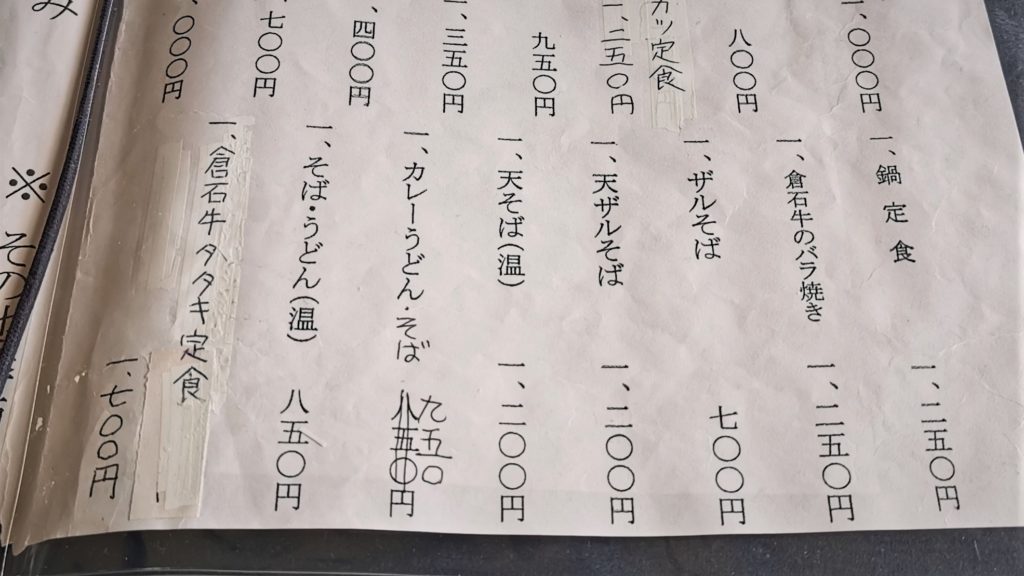 一、〇〇〇円
八〇〇円
カツ定食
一、二五〇円
九五〇円
一、三五〇円
一、四〇〇円
一、七〇〇円
一、〇〇〇円
一、鍋定食
一、二五〇円
一、倉石牛のバラ焼き
一、二五〇円
一、ザルそば
七〇〇円
一、天ザルそば
一、二〇〇円
一、天そば(温)
一、二〇〇円
一、カレーうどん・そば
九五〇
八五〇円
一、そば・うどん(温)
八五〇円
一、倉石牛タタキ定食
一、七〇〇円
み
※ その